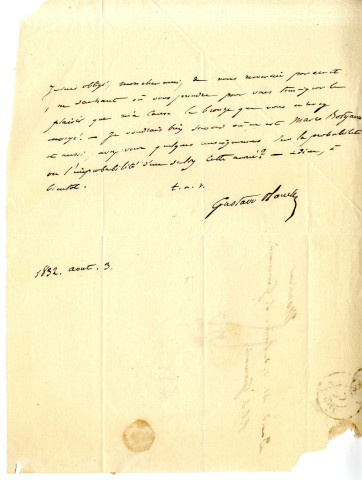 Je suis obligé, mon cher ami, de vous remercier par écrit
ne sachant où vous prendre pour vous témoigner le
plaisir que m'a causé le bronze que vous m'avez
envoyé. — Je voudrais bien savoir où en est Marco Botzaris
et aussi, avez vous quelques renseignements sur la probabilité
ou l'improbabilité d'un salon cette année? — adieu, à
bientôt. t. a. v.
Gustave
1832. aout. 3.